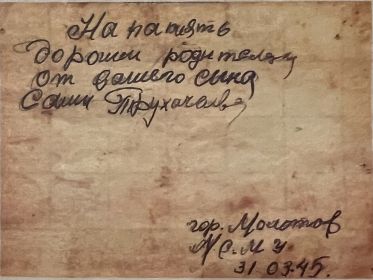 На память
дорогим родителям
от вашего сына
Саши Трухачева
гор. Молотов
31.03.45.